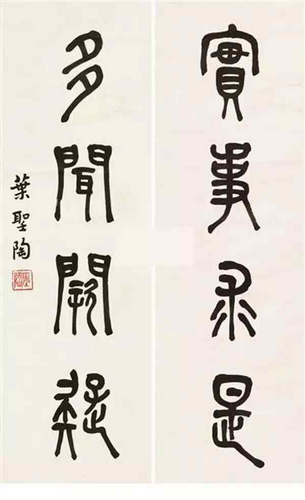 實事求是
多聞闕疑
葉聖陶